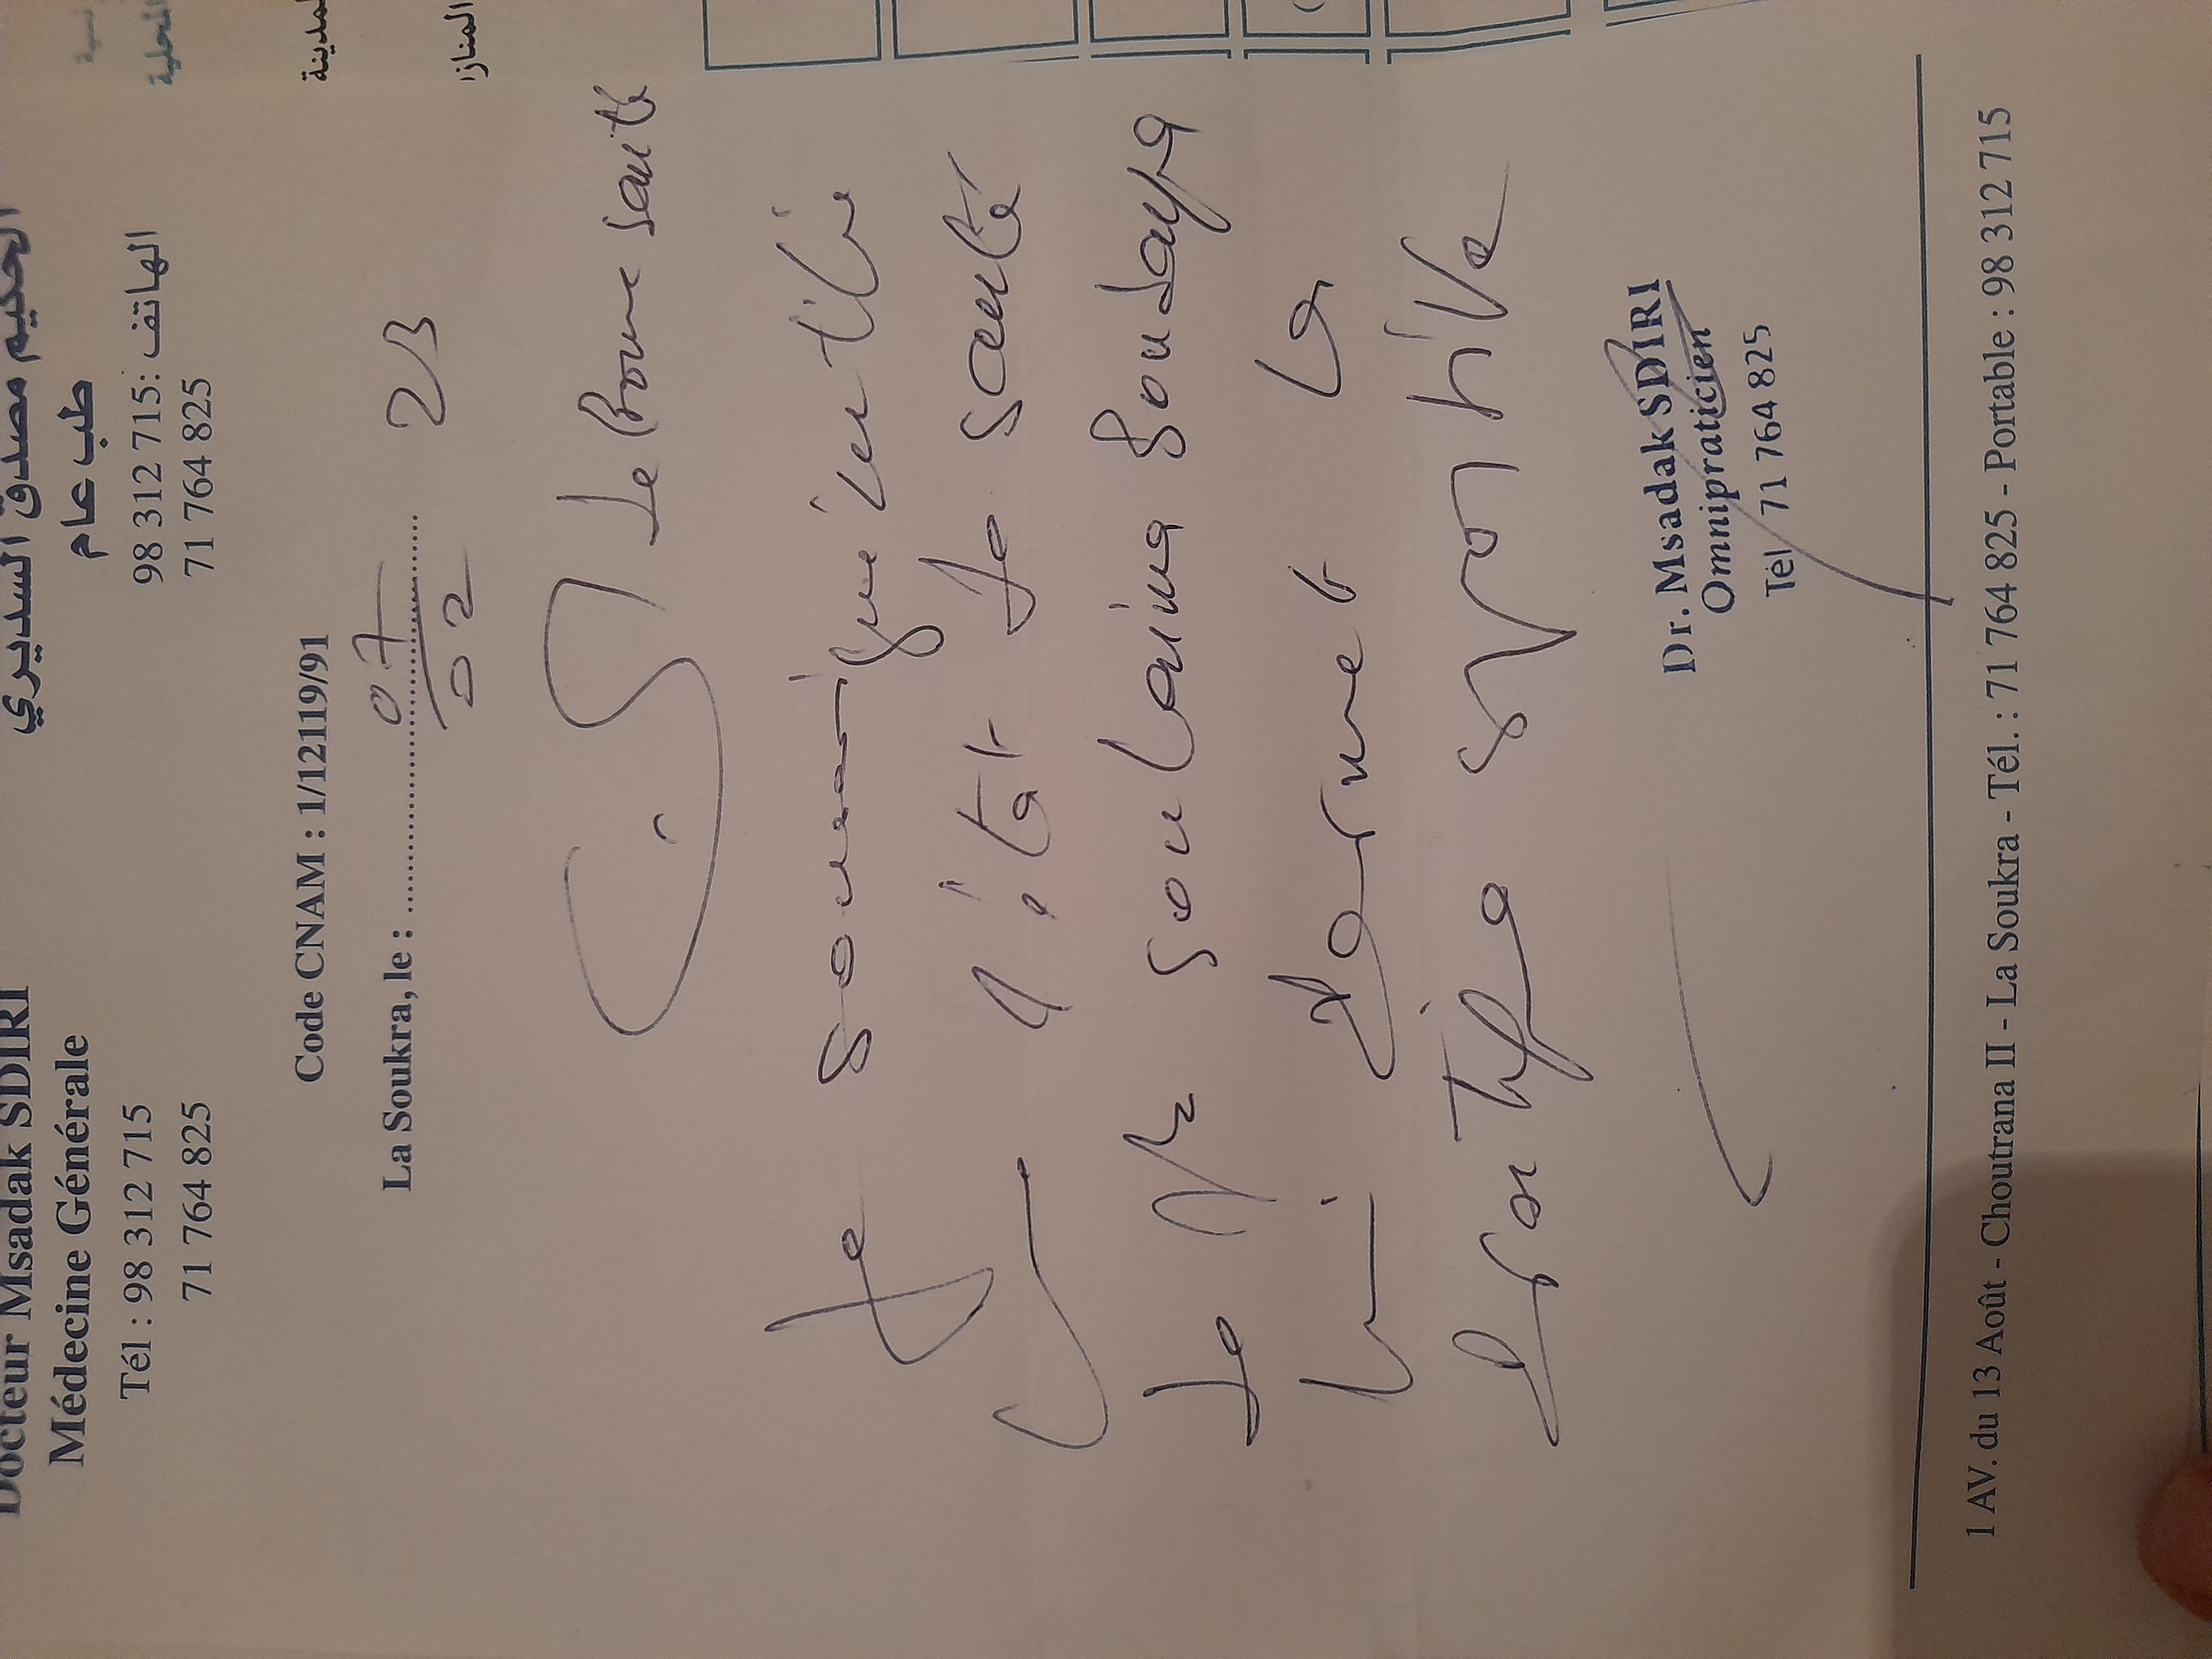 Docteur Msadak SDIRI
Médecine Générale
Tél : 98 312 715
71 764 825
الحكيم مصدق السديري
طب عام
الهاتف: 98 312 715
71 764 825
Code CNAM : 1/12119/91
La Soukra, le : 07/02 23
المحلية
المدينة
C. M de bonne santé
Je soussigné certifie
l'état de santé
de Mr soulaima
lui permet la
pratique sportive
Dr. Msadak SDIRI
Omnipraticien
Tél 71 764 825
1 AV. du 13 Août - Choutrana II - La Soukra - Tél. : 71 764 825 - Portable : 98 312 715